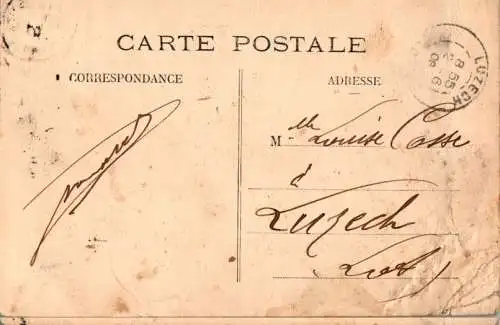 CARTE POSTALE
CORRESPONDANCE
ADRESSE
Mlle Louise Casse
à
Luzech
Lot
LUZECH